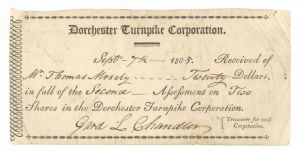 Dorchester Turnpike Corporation.
Sept. 7th 1805. Received of
Mr. Thomas Mosely Twenty Dollars,
in full of the Second Assessment on Two
Shares in the Dorchester Turnpike Corporation.
Gard L Chandler Treasurer for said
Corporation.